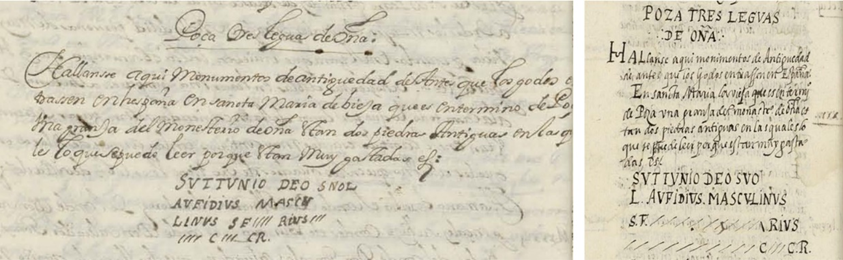 Poça tres leguas de oña:
Hallanse aqui Monumentos de antiguedad de Antes que los godos e
trassen en hespaña En sancta Maria de bieja que es en termino de Po
Vna granja del monesterio de oña stan dos piedras Antiguas en las q
les lo que se puede leer porque stan Muy gastadas es:
SVTTVNIO DEO SNOL
AVFIDIVS MASCV
LINVS SF //// RIVS ///
//// C /// CR.
POZA TRES LEGVAS
DE OÑA.
Hallanse aqui monimentos de Antiguedad
de antes que los Godos entrassen en España
En sancta Maria la vieja que es
de Poza vna granja del monasterio de oña es
tan dos piedras antiguas en las quales lo
que se puede leer porque estan muy gasta
das
SVTTVNIO DEO SVO
L. AVFIDIVS. MASCVLINVS
S.F. RIVS
C C.R.